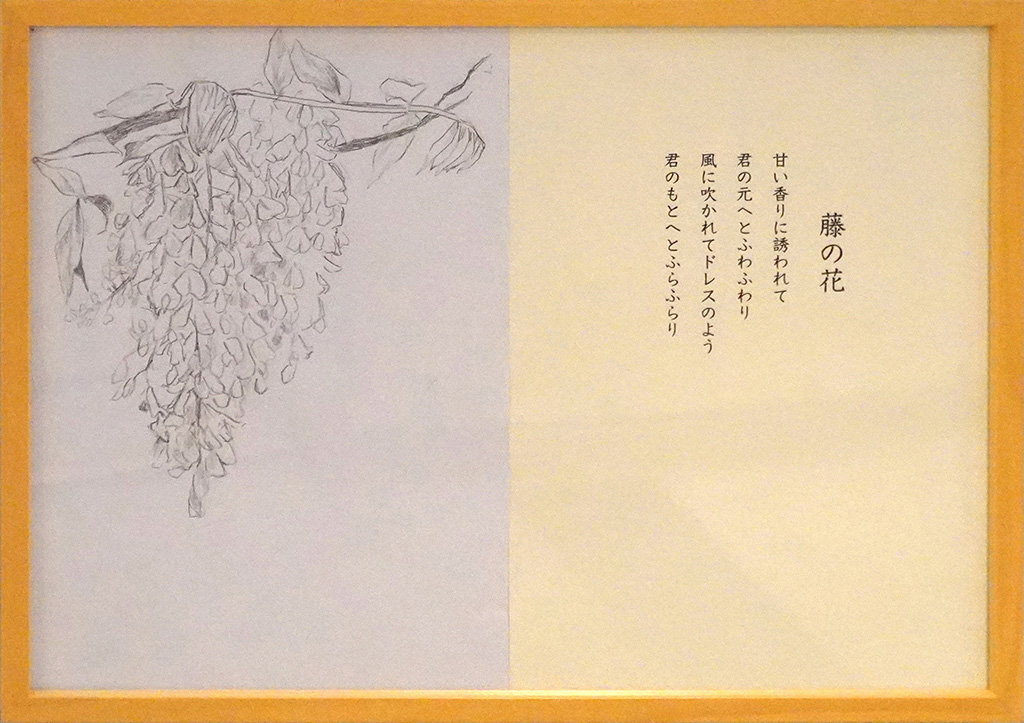 藤の花
甘い香りに誘われて
君の元へとふわふわり
風に吹かれてドレスのよう
君のもとへとふらふらり